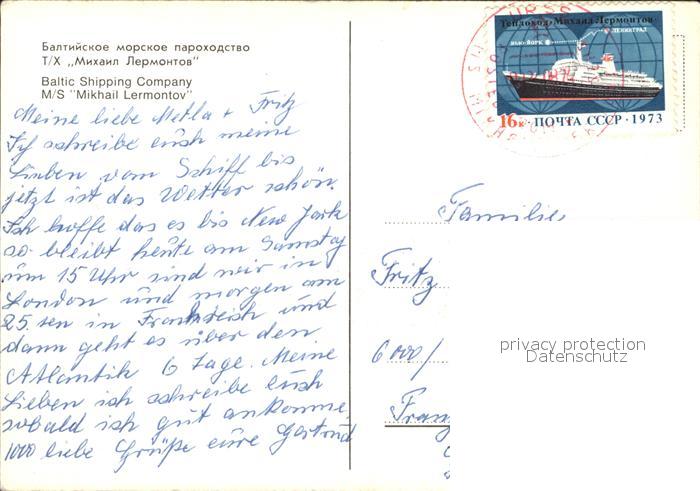 Балтийское морское пароходство
Т/Х „Михаил Лермонтов"
Baltic Shipping Company
M/S "Mikhail Lermontov"
Meine liebe Metla + Fritz
Ich schreibe euch meine
Lieben vom Schiff bis
jetzt ist das Wetter schön.
Ich hoffe das es bis New Jork
so bleibt heute am Samstag
um 15 Uhr sind wir in
London und morgen am
25.ten in Frankreich und
dann geht es über den
Atlantik 6 Tage. Meine
Lieben ich schreibe euch
sobald ich gut ankomme
1000 liebe Grüße eure Gertrud
Теплоход·Михаил Лермонтов·
НЬЮ-ЙОРК
ЛЕНИНГРАД
16к ПОЧТА СССР·1973
URSS
Familie
Fritz
6000/
Fran
privacy protection
Datenschutz